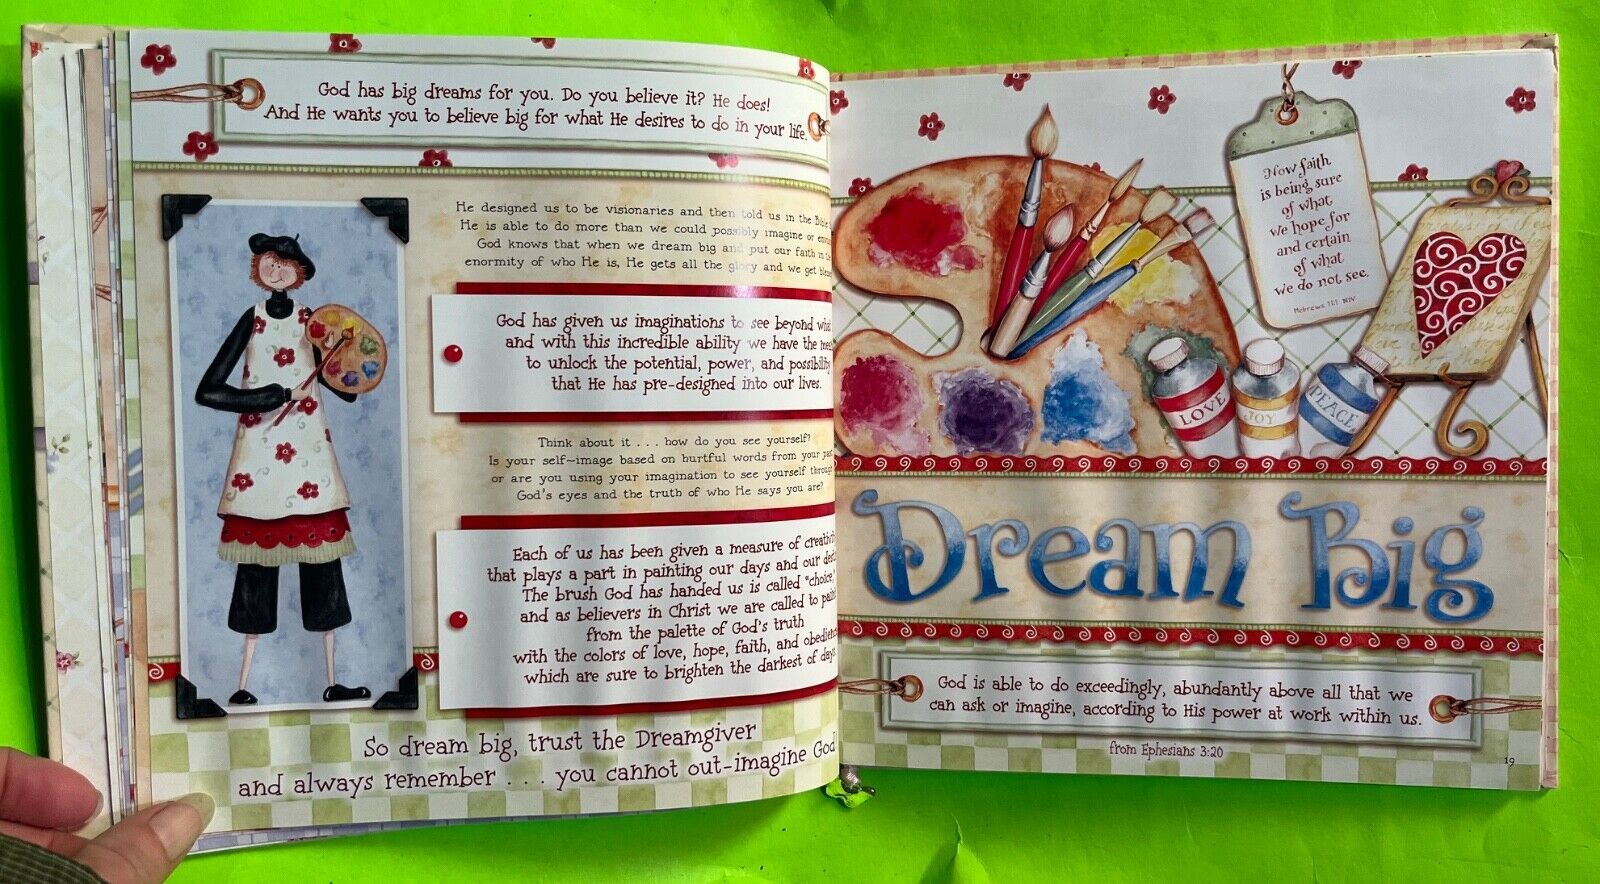 God has big dreams for you. Do you believe it? He does!
And He wants you to believe big for what He desires to do in your life.
He designed us to be visionaries and then told us in the Bible
He is able to do more than we could possibly imagine or
God knows that when we dream big and put our faith in the
enormity of who He is, He gets all the glory and we get
God has given us imaginations to see beyond what
and with this incredible ability we have the
to unlock the potential, power, and possibility
that He has pre-designed into our lives.
Think about it . . . how do you see yourself?
Is your self-image based on hurtful words from your past
or are you using your imagination to see yourself through
God's eyes and the truth of who He says you are?
Each of us has been given a measure of
that plays a part in painting our days and our
The brush God has handed us is called "choice,"
and as believers in Christ we are called to paint
from the palette of God's truth
with the colors of love, hope, faith, and
which are sure to brighten the darkest of days.
So dream big, trust the Dreamgiver
and always remember . . . you cannot out-imagine God
Now faith
is being sure
of what
we hope for
and certain
of what
we do not see.
Hebrews 11:1 NIV
LOVE
JOY
PEACE
Dream Big
God is able to do exceedingly, abundantly above all that we
can ask or imagine, according to His power at work within us.
from Ephesians 3:20
19